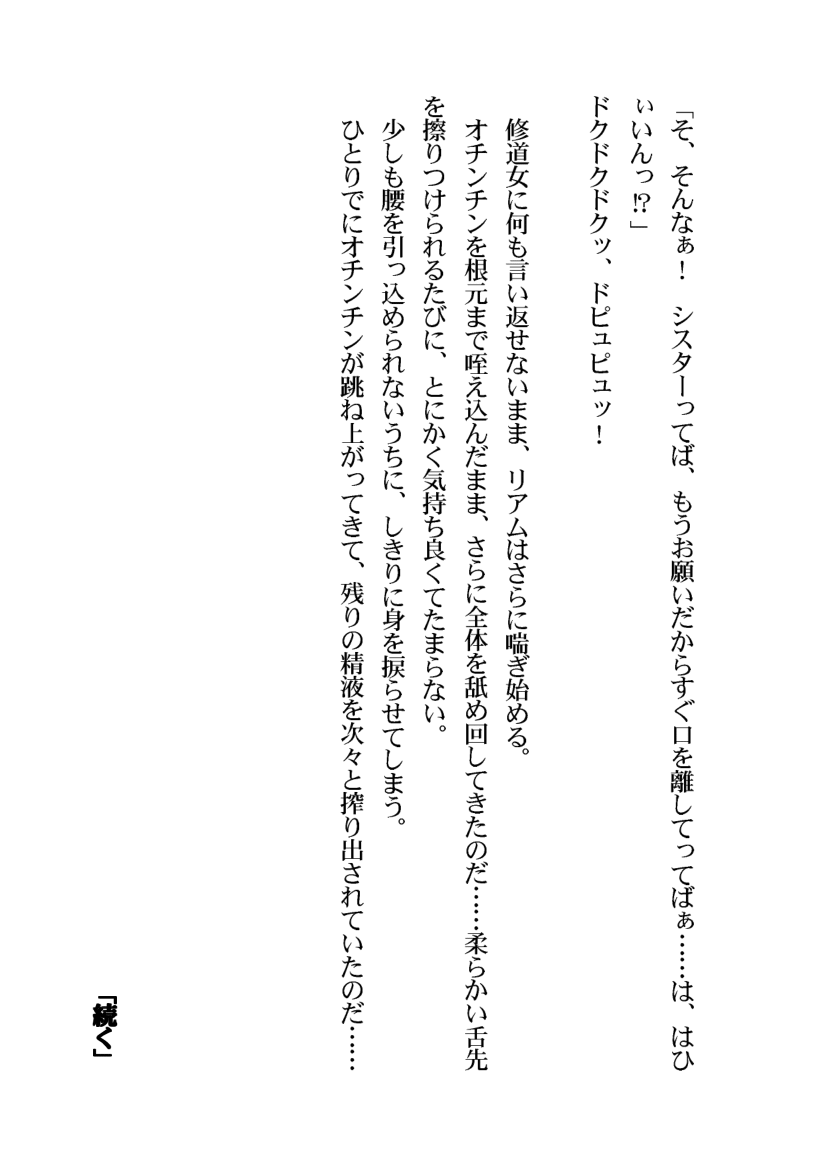 「そ、そんなぁ！　シスターってば、もうお願いだからすぐ口を離してってばぁ……は、はひ
ぃいんっ⁉」
ドクドクドクッ、ドピュピュッ！
修道女に何も言い返せないまま、リアムはさらに喘ぎ始める。
オチンチンを根元まで咥え込んだまま、さらに全体を舐め回してきたのだ……柔らかい舌先
を擦りつけられるたびに、とにかく気持ち良くてたまらない。
少しも腰を引っ込められないうちに、しきりに身を捩らせてしまう。
ひとりでにオチンチンが跳ね上がってきて、残りの精液を次々と搾り出されていたのだ……
「続く」